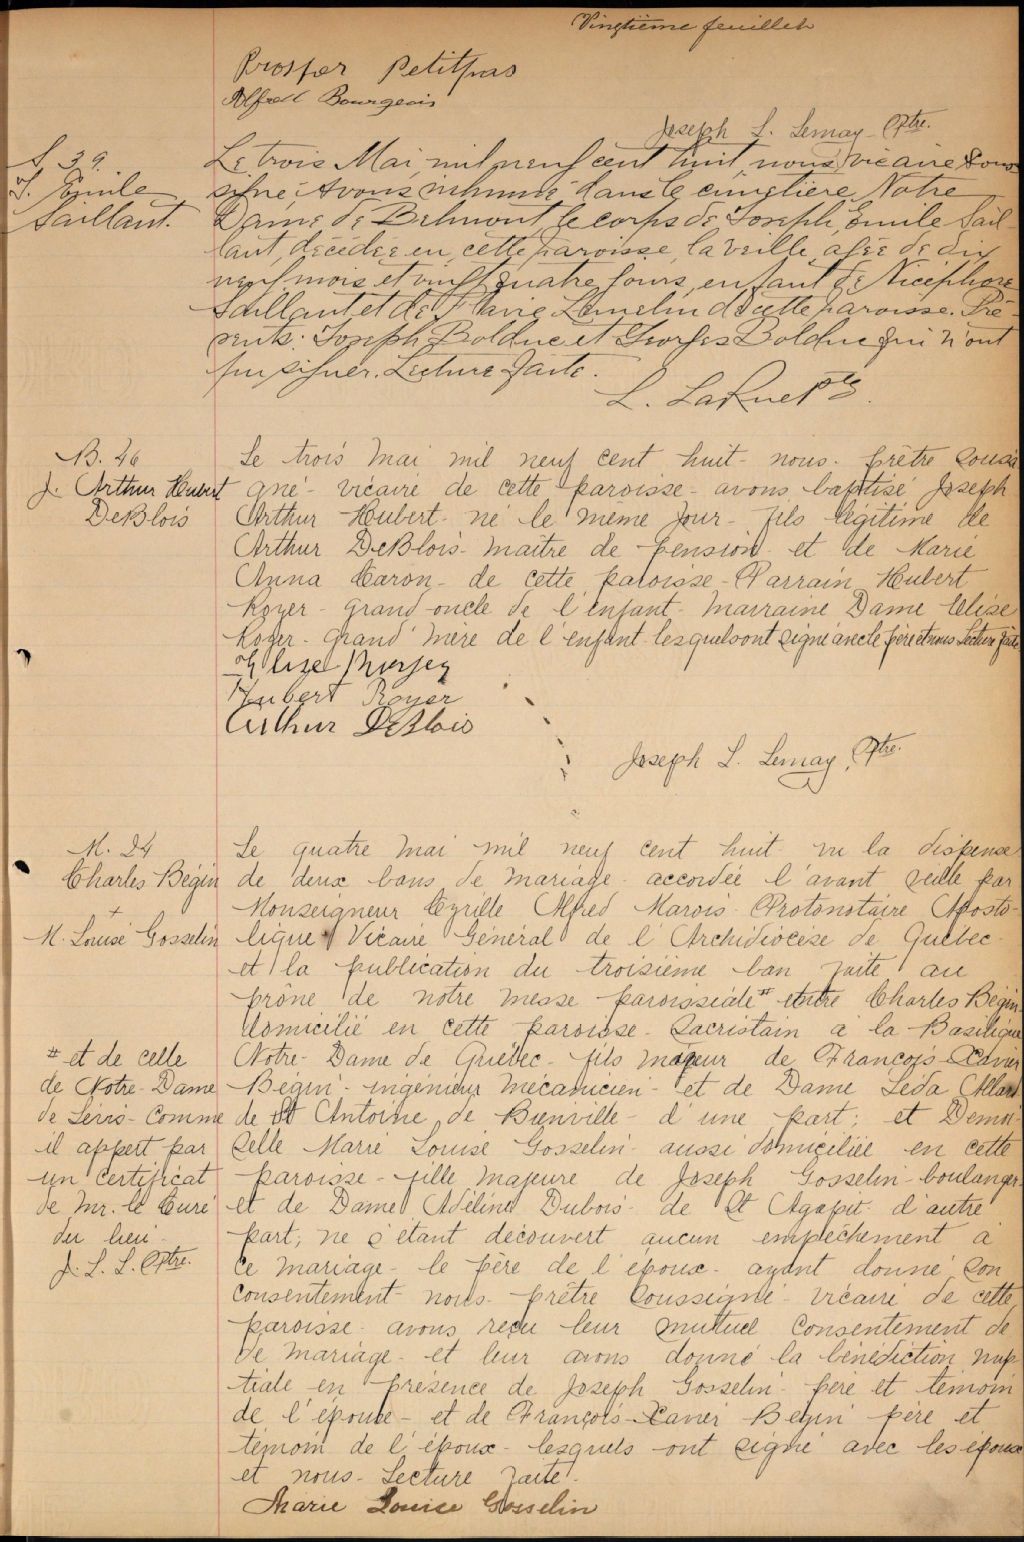 Vingtième feuillet
Prosper Petitpas
Alfred Bourgeois
Joseph L. Lemay Ptre.
S. 39
J. Emile
Saillant.
Le trois Mai, mil neuf cent huit, nous, vicaire sous
signé avons inhumé dans le cimetière Notre
Dame de Belmont, le corps de Joseph, Emile Sail-
lant, décédée en cette paroisse, la veille, agée de dix
neuf mois et vingt quatre jours, enfant de Nicéphore
Saillant et de Flavie Lemelin de cette paroisse. Pré-
sents: Joseph Bolduc et Georges Bolduc qui n'ont
pu signer. Lecture faite.
L. LaRue Ptre.
B. 46
J. Arthur Hubert
DeBlois
Le trois Mai mil neuf cent huit - nous - prêtre soussi
gné - vicaire de cette paroisse - avons baptisé Joseph
Arthur Hubert - né le même jour - fils légitime de
Arthur DeBlois - maître de pension - et de Marie
Anna Caron - de cette paroisse - Parrain Hubert
Royer - grand-oncle de l'enfant - Marraine Dame Elise
Royer - grand'mère de l'enfant lesquels ont signé avec le père et nous Lecture faite
Elize
Hubert Royer
Arthur DeBlois
Joseph L. Lemay, Ptre.
M. 24
Charles Bégin
+
M. Louise Gosselin
Le quatre Mai mil neuf cent huit - vu la dispense
de deux bans de mariage - accordée l'avant veille par
Monseigneur Cyrille Alfred Marois - Protonotaire Aposto-
lique Vicaire Général de l'Archidiocèse de Québec -
et la publication du troisième ban faite au
prône de notre messe paroissiale # entre Charles Bégin
domicilié en cette paroisse - Sacristain à la Basilique
Notre-Dame de Québec - fils majeur de François-Xavier
Bégin - ingénieur mécanicien - et de Dame Léda Allard
de St Antoine de Bienville - d'une part; et Demoi-
selle Marie Louise Gosselin - aussi domiciliée en cette
paroisse - fille majeure de Joseph Gosselin - boulanger
et de Dame Adéline Dubois - de St Agapit - d'autre
part; ne s'étant découvert aucun empêchement à
ce mariage - le père de l'époux - ayant donné son
consentement - nous - prêtre soussigné - vicaire de cette
paroisse - avons reçu leur mutuel consentement de
de mariage - et leur avons donné la bénédiction nup-
tiale en présence de Joseph Gosselin - père et témoin
de l'épouse - et de François-Xavier Bégin père et
témoin de l'époux - lesquels ont signé avec les époux
et nous - Lecture faite.
# et de celle
de Notre-Dame
de Lévis - comme
il appert par
un certificat
de Mr. le Curé
du lieu -
J. L. L. Ptre.
Marie Louise Gosselin